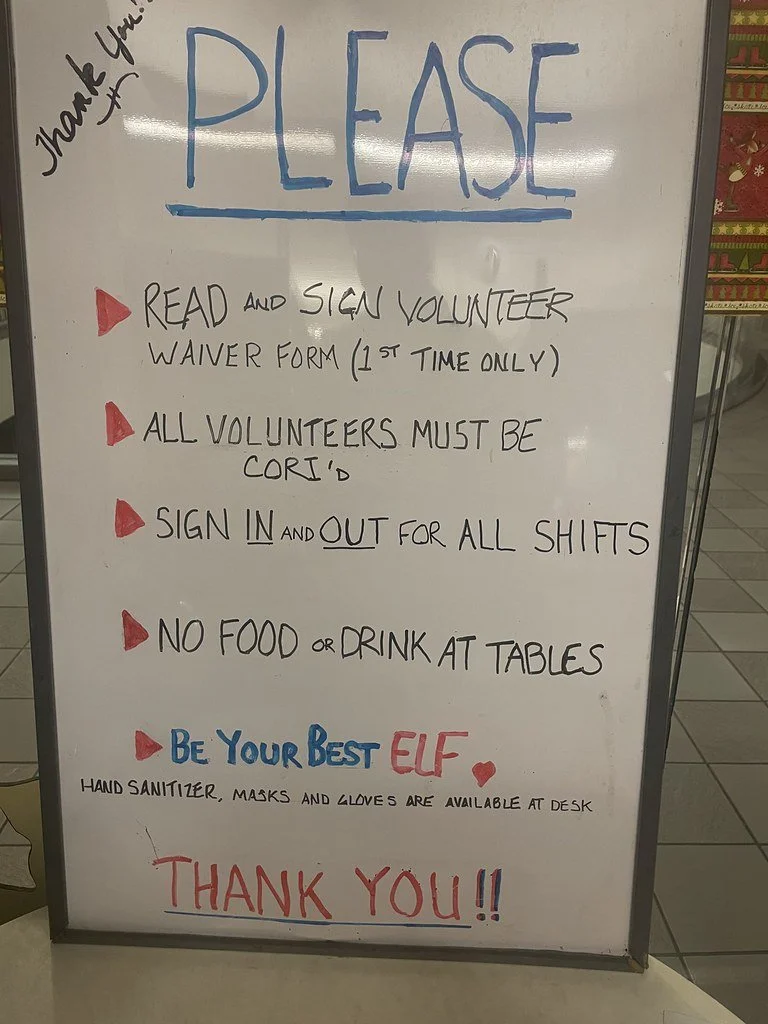 Thank You!!
PLEASE
READ AND SIGN VOLUNTEER
WAIVER FORM (1ST TIME ONLY)
ALL VOLUNTEERS MUST BE
CORI'D
SIGN IN AND OUT FOR ALL SHIFTS
NO FOOD OR DRINK AT TABLES
BE YOUR BEST ELF
HAND SANITIZER, MASKS AND GLOVES ARE AVAILABLE AT DESK
THANK YOU!!